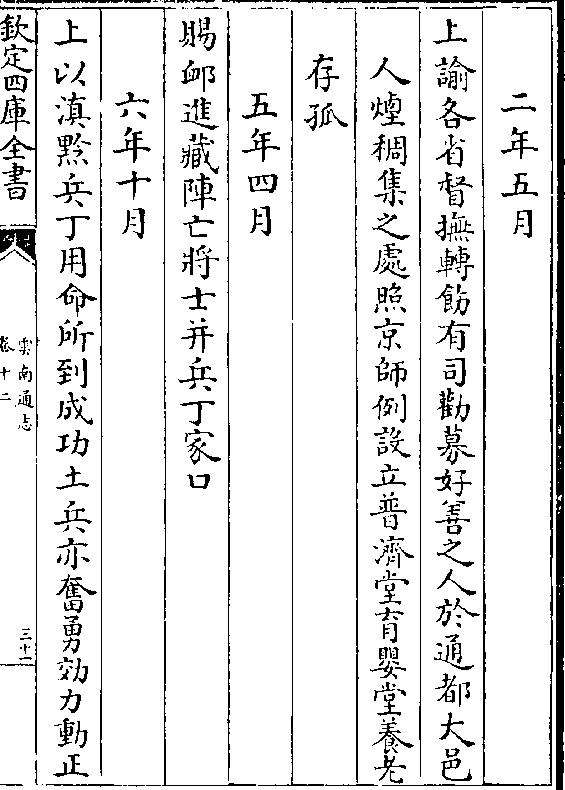 二年五月
上諭各省督撫轉飭有司勸募好善之人於通都大邑
人煙稠集之處照京師例設立普濟堂育嬰堂養老
存孤
五年四月
賜䘏進藏陣亡將士并兵丁家口
六年十月
上以滇黔兵丁用命所到成功土兵亦奮勇効力動正
欽定四庫全書
雲南通志
卷十二
三十一